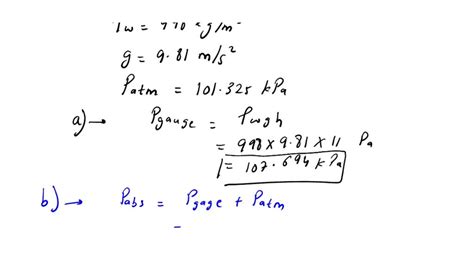 g = 9.81 m/s²
Patm = 101.325 kPa
a) → Pgauge = Pwgh
= 998 × 9.81 × 11 Pa
= 107.694 kPa
b) → Pabs = Pgage + Patm
=